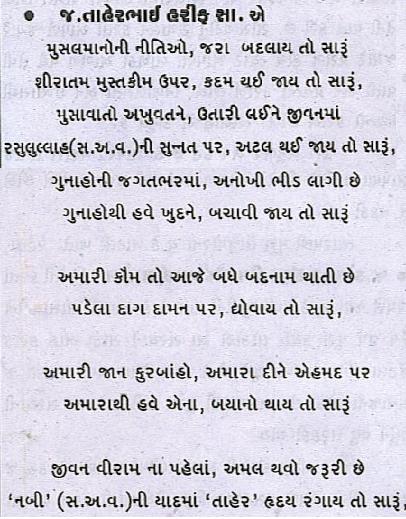 • જ.તાહેરભાઈ હરીફ સા. એ
મુસલમાનોની નીતિઓ, જરા બદલાય તો સારૂં
શીરાતમ મુસ્તકીમ ઉપર, કદમ થઈ જાય તો સારૂં,
મુસાવાતો અખુવતને, ઉતારી લઈને જીવનમાં
રસુલુલ્લાહ(સ.અ.વ.)ની સુન્નત પર, અટલ થઈ જાય તો સારૂં,
ગુનાહોની જગતભરમાં, અનોખી ભીડ લાગી છે
ગુનાહોથી હવે ખુદને, બચાવી જાય તો સારૂં
અમારી કૌમ તો આજે બધે બદનામ થાતી છે
પડેલા દાગ દામન પર, ધોવાય તો સારૂં,
અમારી જાન કુરબાંહો, અમારા દીને એહમદ પર
અમારાથી હવે એના, બયાનો થાય તો સારૂં
જીવન વીરામ ના પહેલાં, અમલ થવો જરૂરી છે
'નબી' (સ.અ.વ.)ની યાદમાં 'તાહેર' હૃદય રંગાય તો સારૂં,